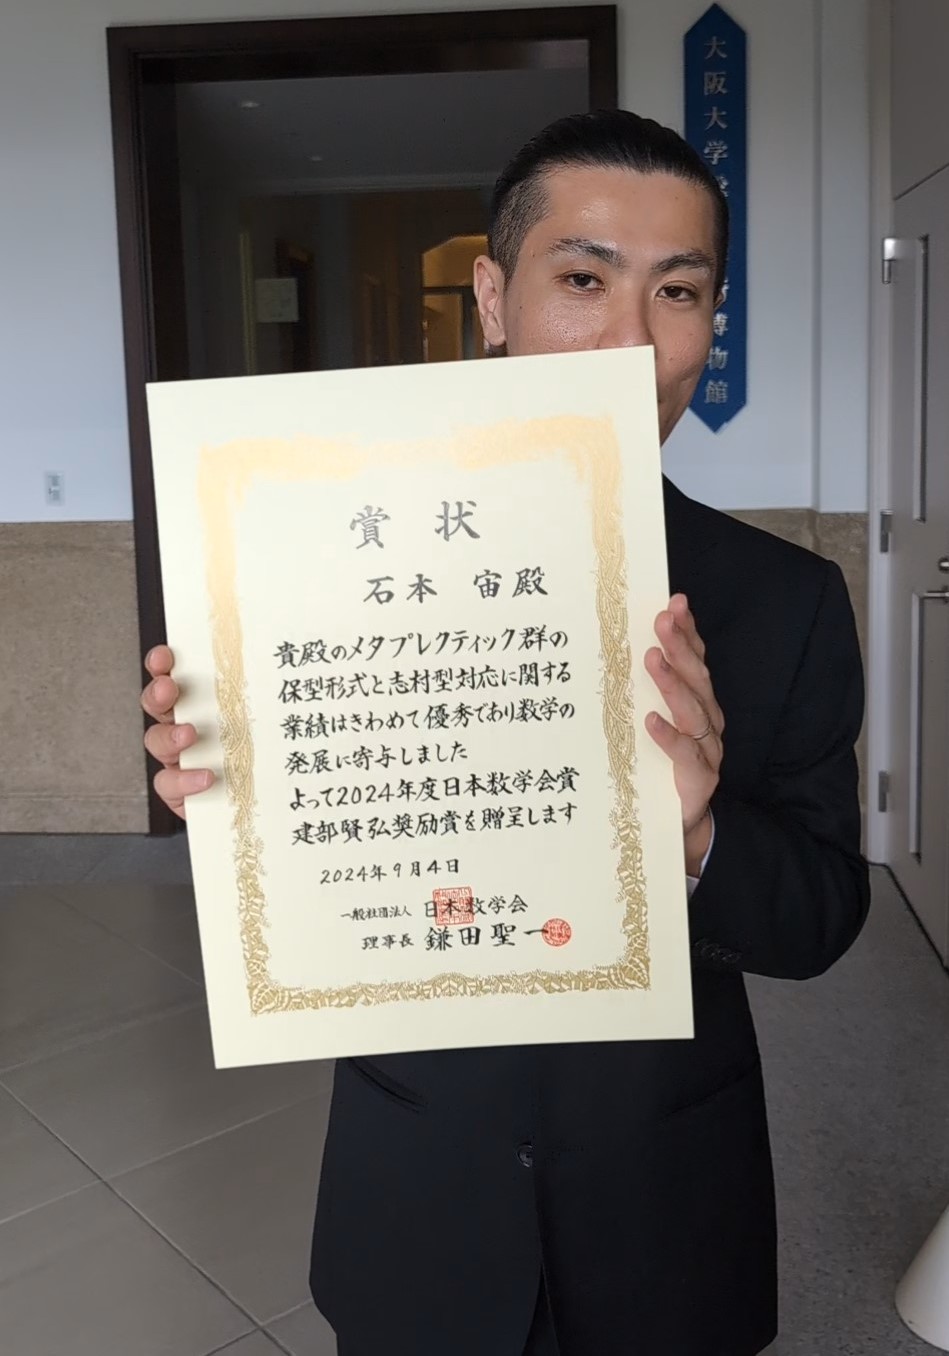 大阪大学
博物館
賞状
石本 宙殿
貴殿のメタプレクティック群の
保型形式と志村型対応に関する
業績はきわめて優秀であり数学の
発展に寄与しました
よって2024年度日本数学会賞
建部賢弘奨励賞を贈呈します
2024年9月4日
一般社団法人 日本数学会
理事長 鎌田聖一